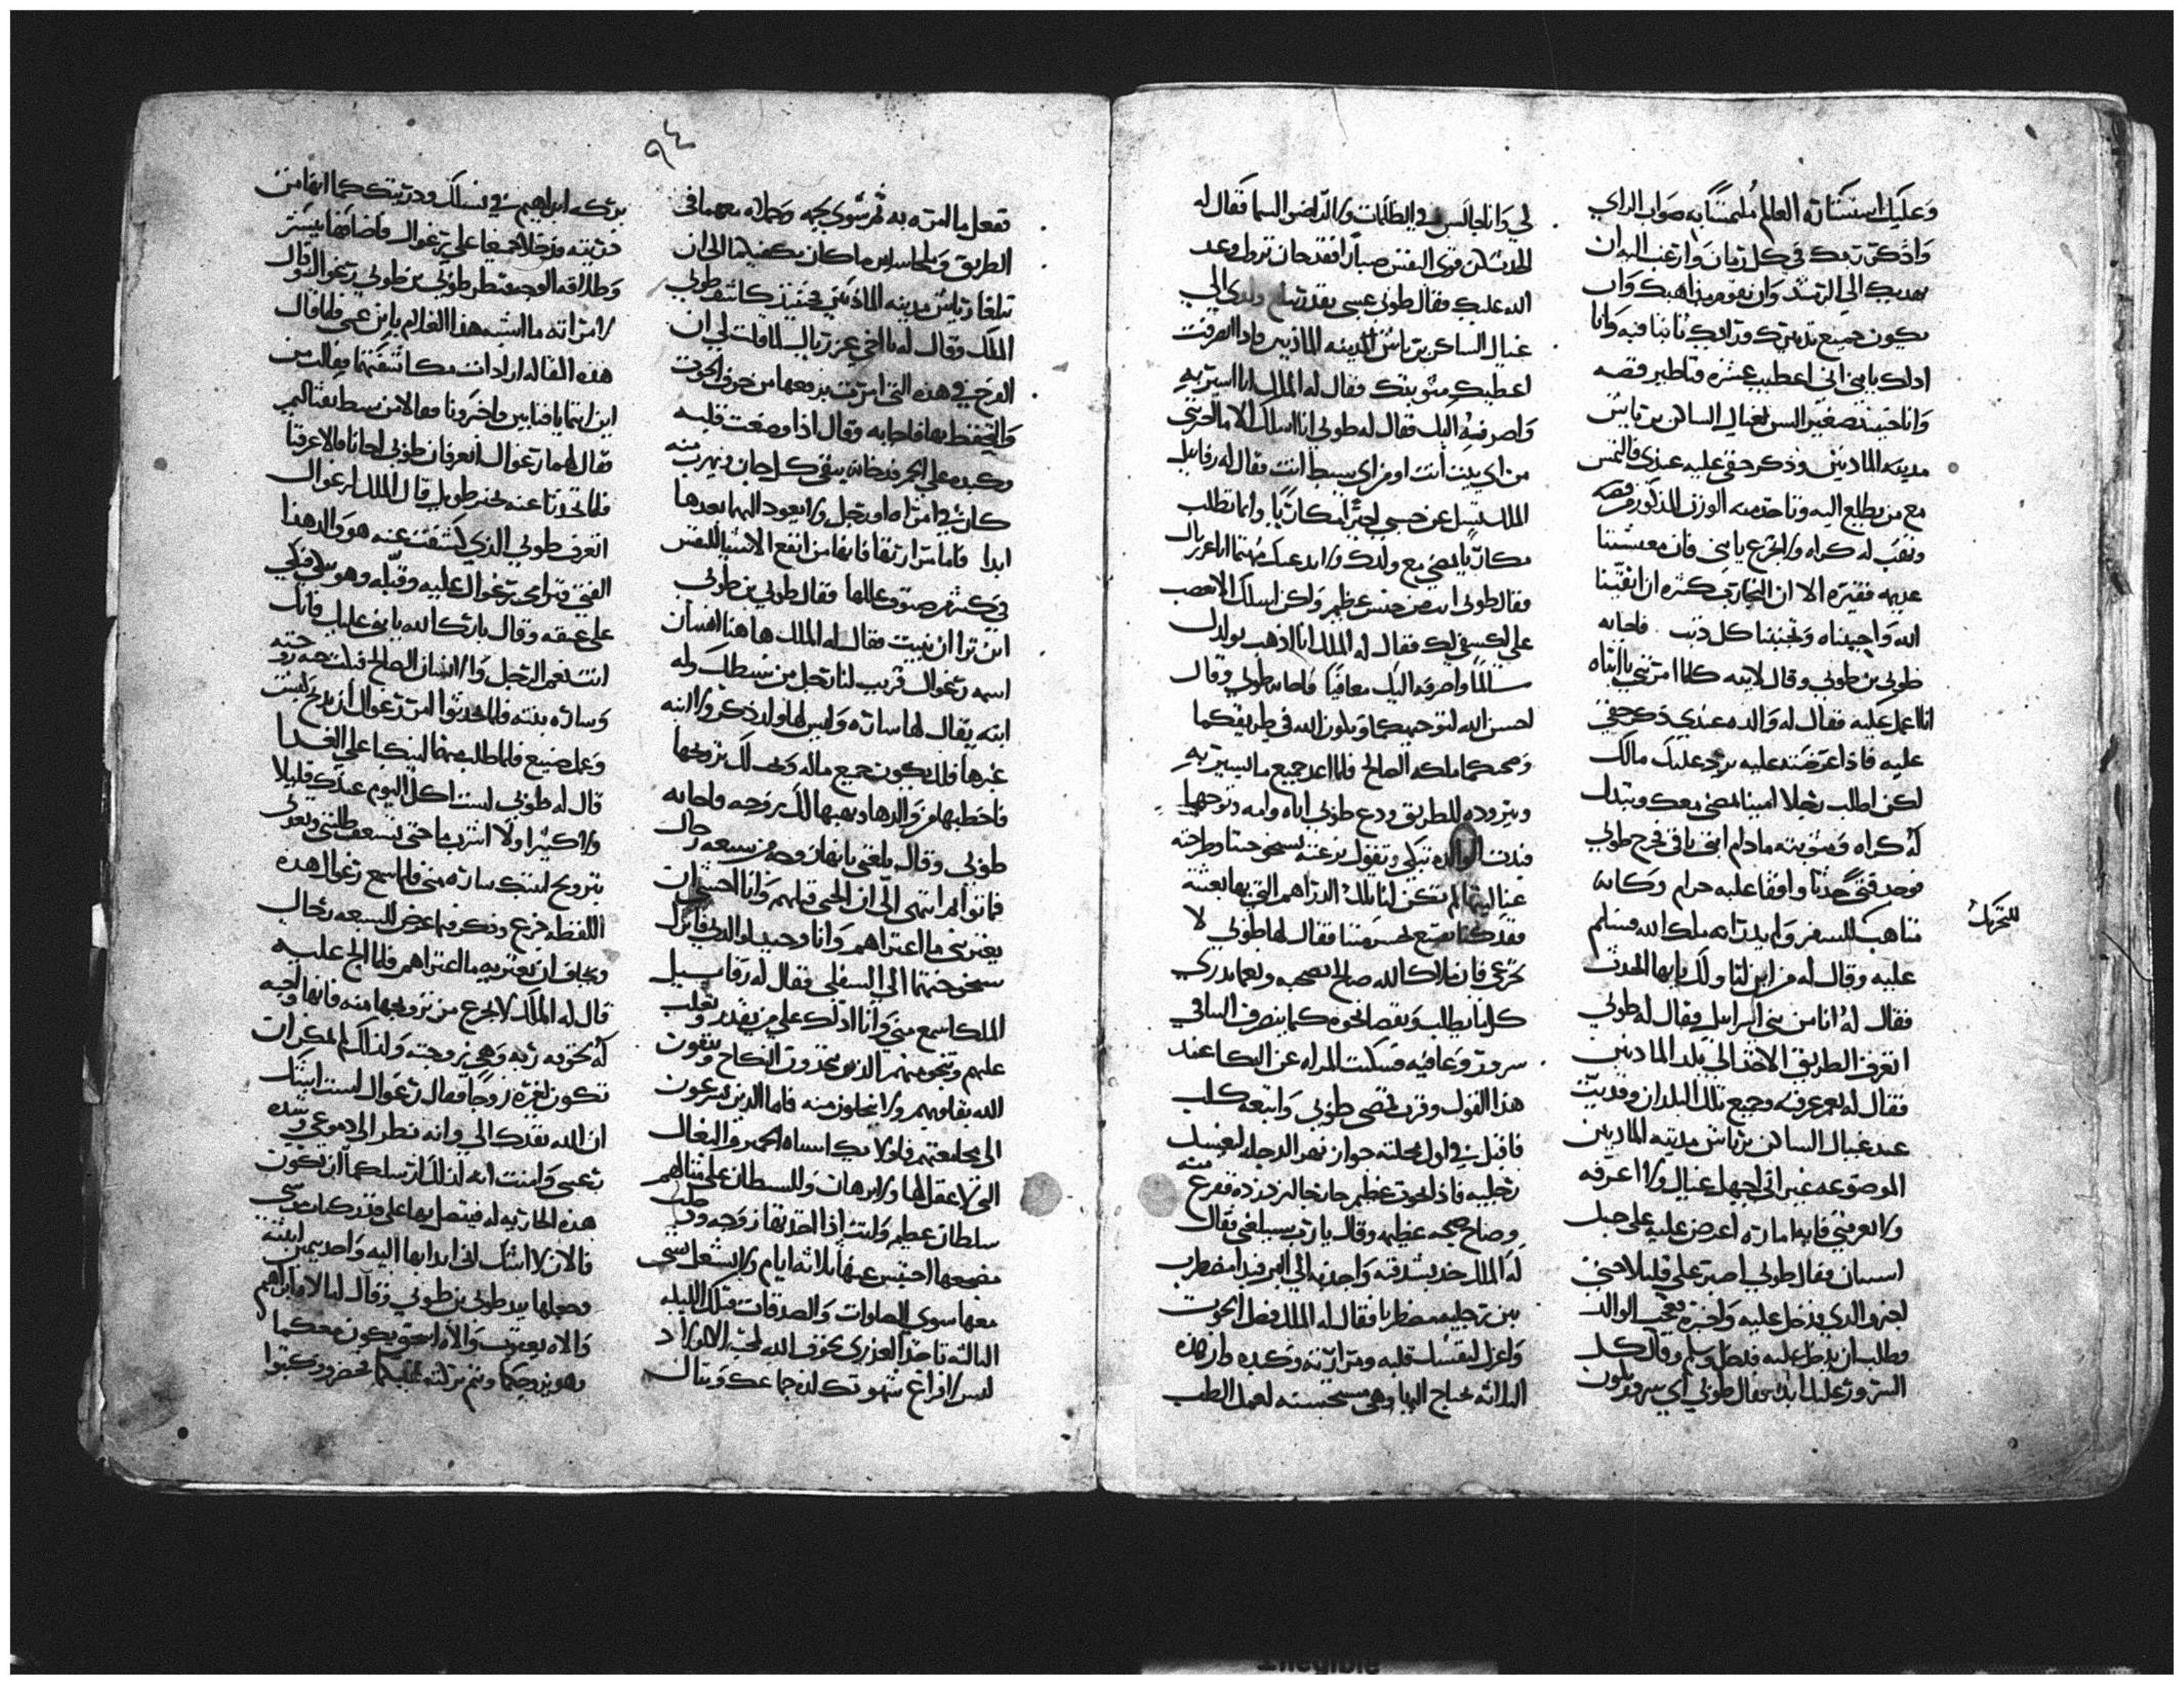 وعليك استشارة العالم ملتمسًا به صواب الراي
واذكر ربك في كل زمان وارغب اليه ان
يهديك الي الرشد وان يقوم مذاهبك وان
يكون جميع تدبيرك ورايك ثابتا فيه وانا
ادلك يابني اني اعطيت عشره قناطير فضه
وانا حينيذ صغير السن لغبال الساكن برتاش
مدينه الماديين وذكر حقي عليه عندي فالتمس
مع من يطلع اليه وتاخذ منه الوزن المذكور من فضه
وتقب له كراه ولا تجزع يابني فان معيشتنا
عديمه فقيره الا ان الخيارت كثيره ان اتقينا
الله واجبناه وتجنبنا كل ذنب فاجابه
طوبي بن طوبي وقال لابيه كلما امرتني يا ابتاه
انا اعمل عليه فقال له والده عندي ذكر حقي
عليه فاذا عرضته عليه يرد عليك مالك
لكن اطلب رجلا امينا يمضي معك ويبدل
له كراه ومثوبته مادام ابقي باقي فخرج طوبي
فوجد فتي حدثا واقفا عليه حرام وكانه
متاهب للسفر ولم يدر انه ملاك الله فسلم
عليه وقال له من اين لنا ولك يا ايها الحدث
فقال له انا من بني اسراييل فقال له طوبي
اتعرف الطريق الاخذ الي بلد الماديين
فقال له نعم عرفته وجميع تلك البلدان وقد بت
عند غبال الساكن برتاش مدينه الماديين
الموضوعه غير اني اجهل غبال ولا اعرفه
ولا يعرفني فايه اماره اعرض عليه علي جبل
فقال طوبي اصبر علي قليلا حتي
اخبر والدي فدخل عليه واخبره فعجب الوالد
وطلب ان يدخل عليه فدخل وسلم وقال كل
السرور عليك ابدا فقال طوبي اي سرور يكون
للتحريك
لي وانا جالس في الظلمات ولا اري ضو السما فقال له
الحدث كن قوي النفس صبارا فقد حان نزول وعد
الله عليك فقال طوبي عسي بقدر تبلغ ولدي الي
غبال الساكن برتاش المدينه الماديين واذا انصرفت
اعطيك مثوبتك فقال له الملاك انا اسير به
واصرفه اليك فقال له طوبي انا اسلك الا ما اخبرتني
من اي بيت انت او من اي سبط انت فقال له رفاييل
الملاك تسل عن جنسي اجيرا مكاريًا وانما تطلب
مكاريًا يمضي مع ولدك ولا ادعك مهتما انا عزريال
فقال طوبي انت من جنس عظيم ولكن اسلك الا تغضب
علي لكشفي لك فقال له الملاك انا اذهب بولدك
سالمًا واصرفه اليك معافيًا فاجابه طوبي وقال
احسن الله لتوجيهكما ويكون الله في طريقكما
وصحبكما ملاكه الصالح فلما اعد جميع ما يسير به
ويتزوده للطريق ودع طوبي اباه وامه وتوجهما
فبدت الوالده تبكي وتقول نزعته
عنا ليتها لم تكن لنا تلك الدراهم التي بها بعثته
فقد كنا نقنع فقال لها طوبي لا
تجزعي فان ملاك الله صالح يصحبه ونعم يدري
كل ما يطلب ويقصد نحوه كما ينصرف الساقي
سرور وعافيه فسكتت المراه عن البكا عند
هذا القول وقرت فمضي طوبي واتبعه كلب
فاقبل في اول محلته جوار نهر الدجله ليغسل
رجليه فاذا بحوت عظيم جا يزدرده ففزع منه
وصاح صيحه عظيمه وقال يارب سيبلغني فقال
له الملاك خذ بشدقته واجذبه الي البر فبدا يضطرب
بين رجليه مضطربا فقال له الملاك فصل الحوت
واعزل لنفسك قلبه ومرارته وكبده فان هذه
الثلاثه تحتاج اليها وهي مستحسنه لعمل الطب
٩٤
ففعل ما امره به ثم شوي لحمه وحملاه معهما في
الطريق وملحا سايره ما كان يكفيهما الي ان
بلغا رتاش مدينه الماديين فحينيذ كاشف طوبي
الملك وقال له يا اخي عزريال لما قلت لي ان
العلاج في هذه التي امرت برفعها من جوف الحوت
والتحفظ بها فاجابه وقال اذا وضعت قلبه
وكبده علي الجمر فدخانه ينفي كل جان ويهرب منه
كان في امراه او رجل ولا يعود اليهما بعدها
ابدا فاما مرارتها فانها من انفع الاشيا للنفس
في كشف ضو وعللها فقال طوبي بن طوبي
اين ترا ان نبيت فقال له الملاك هاهنا انسان
اسمه رعوال قريب لنا رجل من سبطك وله
ابنه يقال لها ساره وليس لها ولد ذكر ولا ابنه
غيرها فلك يكون جميع ماله ويجب لك تزوجها
فاخطبها من والدها ويهبها لك بزوجه فاجابه
طوبي وقال بلغني بانها زوجه من سبعه رجال
فماتوا ثم انتهي الي ان الجن قتلهم وانا اخشي ان
يعتريني ما اعتراهم وانا وحيد لوالدي فانزل
شيخوختهما الي السفلي فقال له رفاييل
الملاك اسمع مني وانا ادلك علي من يقدر وتغلب
عليهم وتنجو منهم الذين يتخذون النكاح وينفون
الله بقلوبهم ولا يخلون منه فاما الذين يسرعون
الي مجامعتهم فاولايك اشباه الحمير والبغال
التي لا عقل لها ولا برهان وللشيطان علي مثالهم
سلطان عظيم وانت اذا اخذتها زوجه ودخلت
مضجعها احتبس عنها ثلاثه ايام ولا تشتغل بشي
معها سوي الصلوات والصدقات فتلك الليله
الثالثه تاخذ العذري بخوف الله لمحبه الاولاد
ليس لافراغ شهوتك لان جماعك وتنال
بركه ابراهيم في نسلك وذريتك كما انها من
ذريته فدخلا جميعا علي رعوال فاضافهما ببشر
وطلاقه الوجه فنظر طوبي بن طوبي رعوال وقال
لامراته ما اشبه هذا الغلام بابن عمي فلما قال
هذه المقاله اراد ان يكاشفهما فقال من
اين انتما يافتايين واخبرونا فقالا من سبط نفتاليم
فقال لهما رعوال اتعرفان طوبي اخانا فقالا عرفنا
فلما تحدثا عنه بخبر طويل قال الملاك لرعوال
اتعرف طوبي الذي كشفت عنه هو والد هذا
الفتي فترامي رعوال عليه وقبله وهو يبكي
علي عنقه وقال باركك الله يا بني عليك فانك
انت نعم الرجل والانسان الصالح فبكت حنه زوجته
وساره بنته فلما تحدثوا امر رعوال ان يذبح كبش
وعمل صنيع فلما طلب منهما ليتكيا علي الغدا
قال له طوبي لست اكل اليوم عندك قليلا
ولا كثيرا ولا اشرب ما حتي تسعف طلبتي وتعدني
بتزويج ابنتك ساره مني فلما سمع رعوال هذه
اللفظه جزع وذكر فيما عرض للسبعه رجال
وخاف ان يعتريه ما اعتراهم فلما الح عليه
قال له الملاك لا تجزع من تزويجها منه فانها واجبه
له بخوفه ربه وهي زوجته ولذلك لم يكن ان
تكون لغيره زوجا فقال رعوال لست اشك
ان الله بقدرك الي وانه نظر الي دموعي وشده
تعبي وامنت انه لذلك ارسلكما الي ان تكون
هذه الجاريه له فيتصل بها علي قدر كتاب موسي
فالان لا اشك اني ابدا بها اليه واخذ يمين ابنته
وجعلها بيد طوبي بن طوبي وقال لها الاه ابراهيم
والاه يعقوب والاه اسحق يكون معكما
وهو يزوجكما ويتم بركته عليكما فحضر وكتبوا